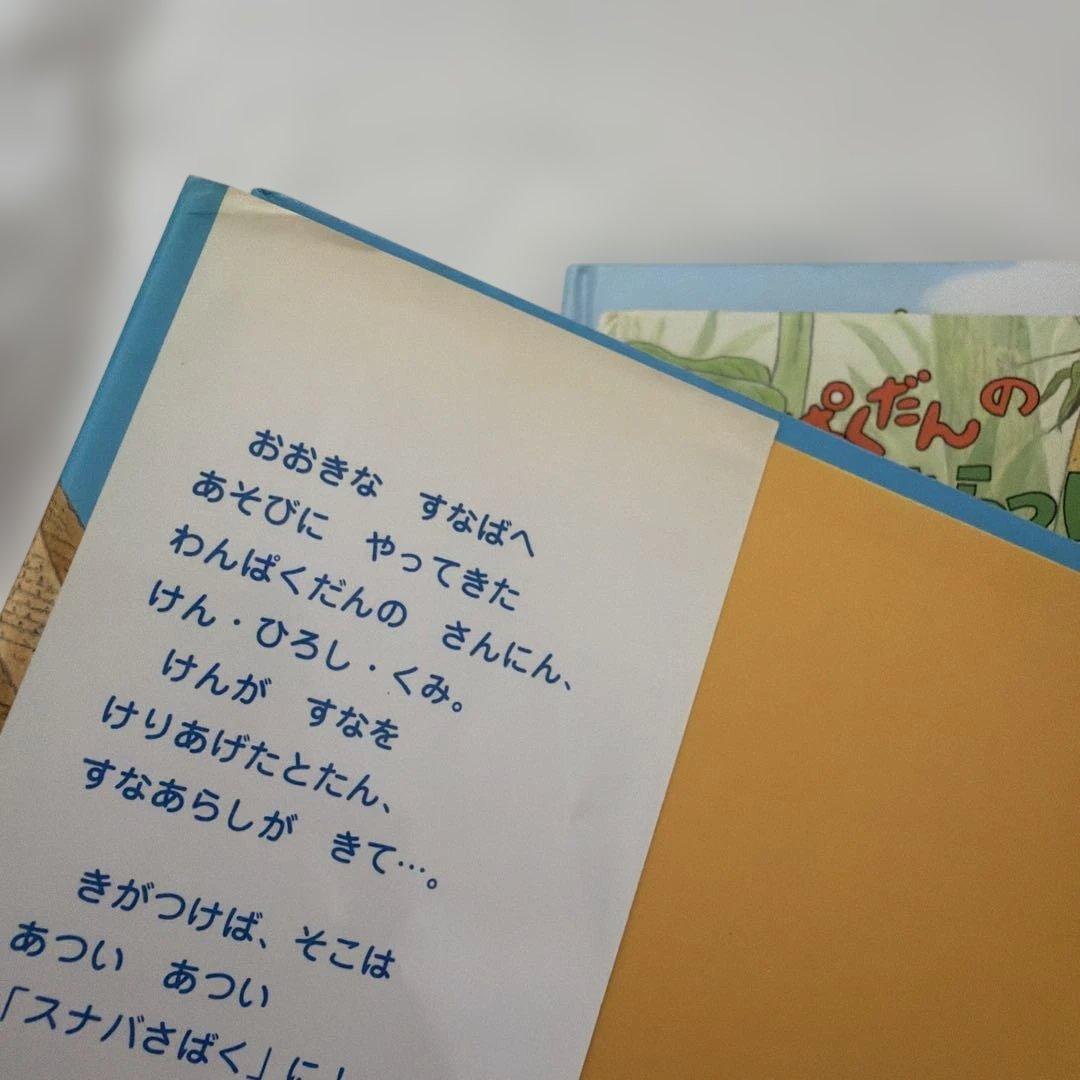 おおきな　すなばへ
あそびに　やってきた
わんぱくだんの　さんにん、
けん・ひろし・くみ。
けんが　すなを
けりあげたとたん、
すなあらしが　きて…。
きがつけば、そこは
あつい　あつい
「スナバさばく」に
ぱくだんの